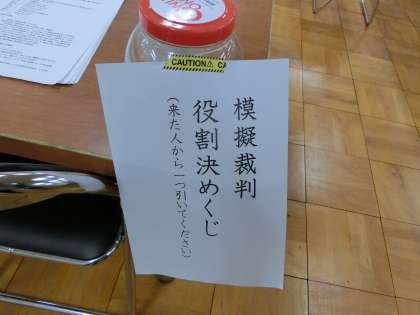 CAUTION
CA
模擬裁判
役割決めくじ
(来た人から一つ引いてください)